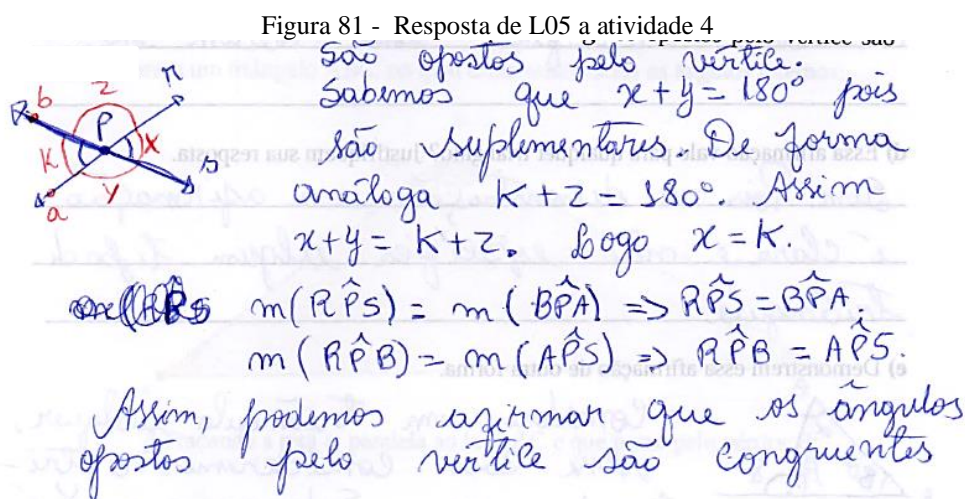 Figura 81 - Resposta de L05 a atividade 4
São opostos pelo vértice.
Sabemos que x+y = 180° pois
são suplementares. De forma
análoga K+z = 180°. Assim
x+y = K+z. Logo x = K.
m(RP̂S) = m(BP̂A) => RP̂S = BP̂A.
m(RP̂B) = m(AP̂S) => RP̂B = AP̂S.
Assim, podemos afirmar que os ângulos
opostos pelo vértice são congruentes
b
z
r
P
K
x
s
y
a